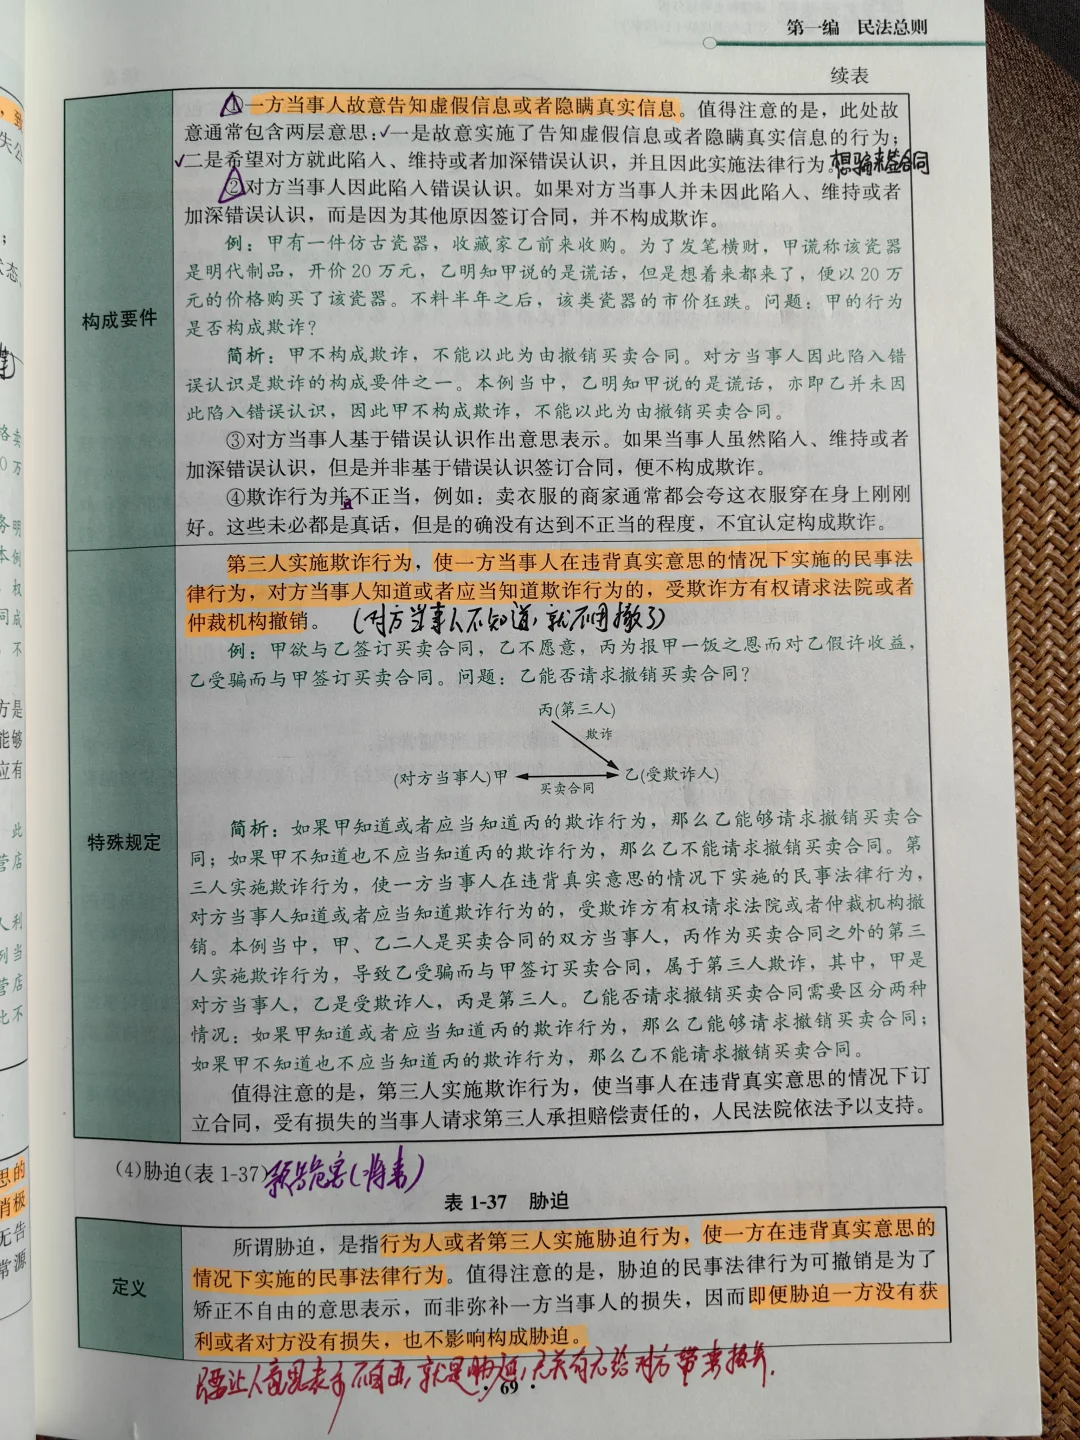 第一编 民法总则
续表
构成要件
①一方当事人故意告知虚假信息或者隐瞒真实信息。值得注意的是，此处故
意通常包含两层意思：✓一是故意实施了告知虚假信息或者隐瞒真实信息的行为；
✓二是希望对方就此陷入、维持或者加深错误认识，并且因此实施法律行为。想骗来签合同
②对方当事人因此陷入错误认识。如果对方当事人并未因此陷入、维持或者
加深错误认识，而是因为其他原因签订合同，并不构成欺诈。
例：甲有一件仿古瓷器，收藏家乙前来收购。为了发笔横财，甲谎称该瓷器
是明代制品，开价20万元，乙明知甲说的是谎话，但是想着来都来了，便以20万
元的价格购买了该瓷器。不料半年之后，该类瓷器的市价狂跌。问题：甲的行为
是否构成欺诈？
简析：甲不构成欺诈，不能以此为由撤销买卖合同。对方当事人因此陷入错
误认识是欺诈的构成要件之一。本例当中，乙明知甲说的是谎话，亦即乙并未因
此陷入错误认识，因此甲不构成欺诈，不能以此为由撤销买卖合同。
③对方当事人基于错误认识作出意思表示。如果当事人虽然陷入、维持或者
加深错误认识，但是并非基于错误认识签订合同，便不构成欺诈。
④欺诈行为并不正当，例如：卖衣服的商家通常都会夸这衣服穿在身上刚刚
好。这些未必都是真话，但是的确没有达到不正当的程度，不宜认定构成欺诈。
特殊规定
第三人实施欺诈行为，使一方当事人在违背真实意思的情况下实施的民事法
律行为，对方当事人知道或者应当知道欺诈行为的，受欺诈方有权请求法院或者
仲裁机构撤销。（对方当事人不知道，就不用撤了）
例：甲欲与乙签订买卖合同，乙不愿意，丙为报甲一饭之恩而对乙假许收益，
乙受骗而与甲签订买卖合同。问题：乙能否请求撤销买卖合同？
丙(第三人)
欺诈
(对方当事人)甲 乙(受欺诈人)
买卖合同
简析：如果甲知道或者应当知道丙的欺诈行为，那么乙能够请求撤销买卖合
同；如果甲不知道也不应当知道丙的欺诈行为，那么乙不能请求撤销买卖合同。第
三人实施欺诈行为，使一方当事人在违背真实意思的情况下实施的民事法律行为，
对方当事人知道或者应当知道欺诈行为的，受欺诈方有权请求法院或者仲裁机构撤
销。本例当中，甲、乙二人是买卖合同的双方当事人，丙作为买卖合同之外的第三
人实施欺诈行为，导致乙受骗而与甲签订买卖合同，属于第三人欺诈，其中，甲是
对方当事人，乙是受欺诈人，丙是第三人。乙能否请求撤销买卖合同需要区分两种
情况：如果甲知道或者应当知道丙的欺诈行为，那么乙能够请求撤销买卖合同；
如果甲不知道也不应当知道丙的欺诈行为，那么乙不能请求撤销买卖合同。
值得注意的是，第三人实施欺诈行为，使当事人在违背真实意思的情况下订
立合同，受有损失的当事人请求第三人承担赔偿责任的，人民法院依法予以支持。
(4)胁迫(表1-37) 预告危害(将来)
表1-37 胁迫
定义
所谓胁迫，是指行为人或者第三人实施胁迫行为，使一方在违背真实意思的
情况下实施的民事法律行为。值得注意的是，胁迫的民事法律行为可撤销是为了
矫正不自由的意思表示，而非弥补一方当事人的损失，因而即便胁迫一方没有获
利或者对方没有损失，也不影响构成胁迫。
只要让人意思表示不自由，就是胁迫，无关有无给对方带来损失.
· 69 ·